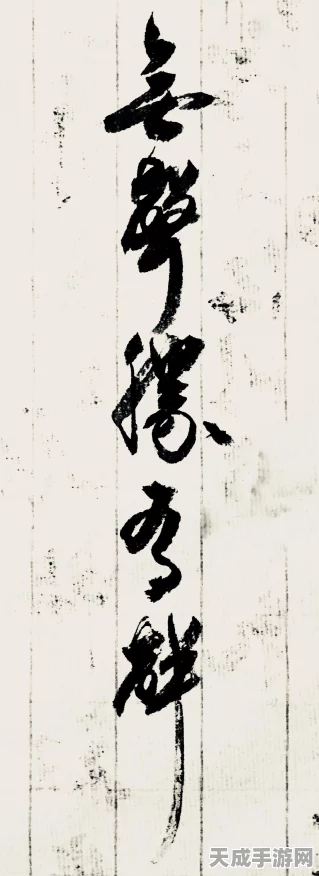 無聲勝有聲
天成手游网